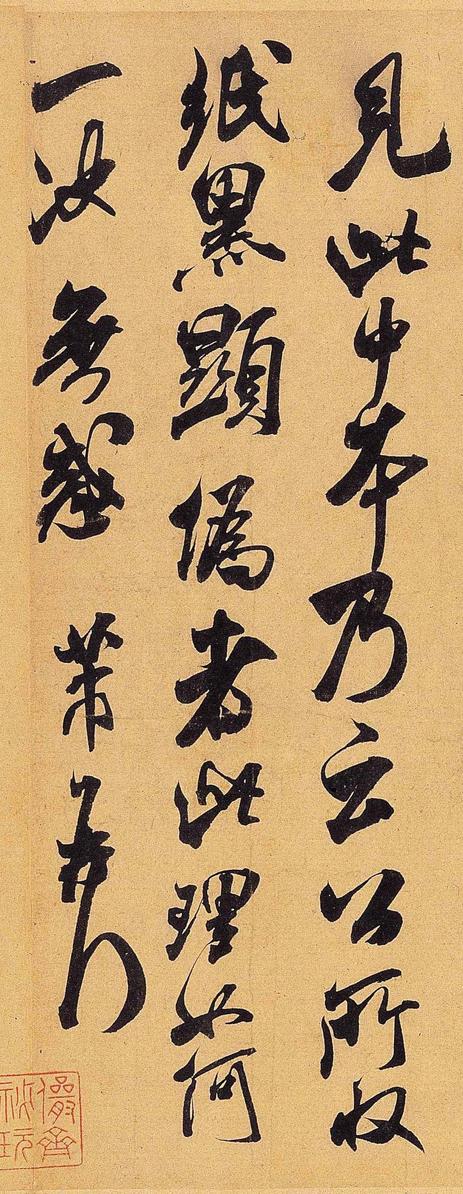 見此中本乃云公所收
紙黑顯偽者此理如何
一決無惑 芾再拜
儼齋
秘玩